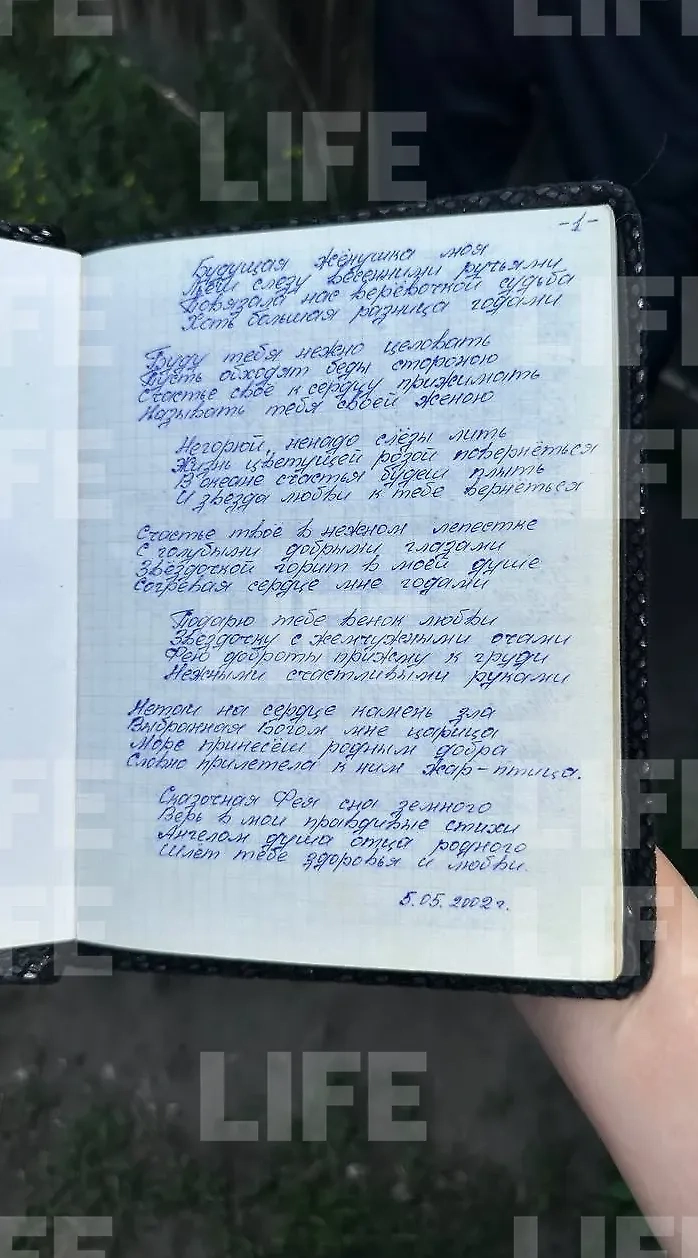 LIFE
-1-
Будущая женушка моя
слезу весенними ручьями
Повязала нас верёвочкой судьба
Хоть большая разница годами
Буду тебя нежно целовать
Пусть обходят беды стороною
Счастье своё к сердцу прижимать
Называть тебя своей женою
Негорюй, ненадо слёзы лить
Жизнь цветущей розой повернёться
В океане счастья будеш плыть
И звезда любви к тебе вернёться
Счастье твоё в нежном лепестке
С голубыми добрыми глазами
Звёздочкой горит в моей душе
Согревая сердце мне годами
Подарю тебе венок любви
Звёздочку с жемчужными очами
Фею доброты прижму к груди
Нежными счастливыми руками
Нетаи на сердце камень зла
Выбранная Богом мне царица
Море принесёш родным добра
Словно прилетела к ним жар-птица.
Сказочная Фея сна земного
Верь в мои правдивые стихи
Ангелом душа отца родного
Шлёт тебе здоровья и любви.
5.05.2002г.